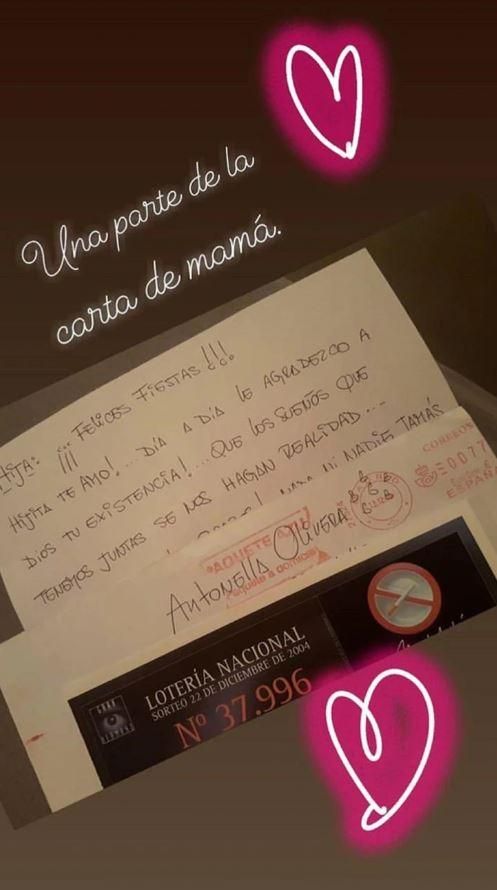 Una parte de la
carta de mamá.
¡¡¡ FELICES FIESTAS!!!
HIJA:
HIJITA TE AMO!... DIA A DIA LE AGRADEZCO A
DIOS TU EXISTENCIA!... QUE LOS SUEÑOS QUE
TENEMOS JUNTAS SE NOS HAGAN REALIDAD....
NADIE JAMÁS
CORREOS
€0077
ESPAÑA
PAQUETE AZUL
paquete a domicilio
Antonella Olivera
GRAN
HERMANO
LOTERÍA NACIONAL
SORTEO 22 DE DICIEMBRE DE 2004
Nº 37.996